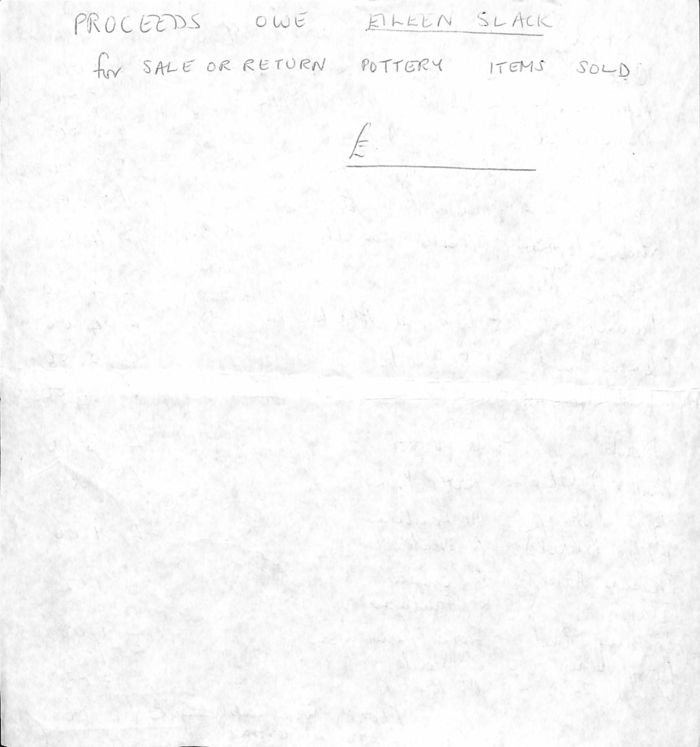 PROCEEDS OWE EILEEN SLACK
for SALE OR RETURN POTTERY ITEMS SOLD
£